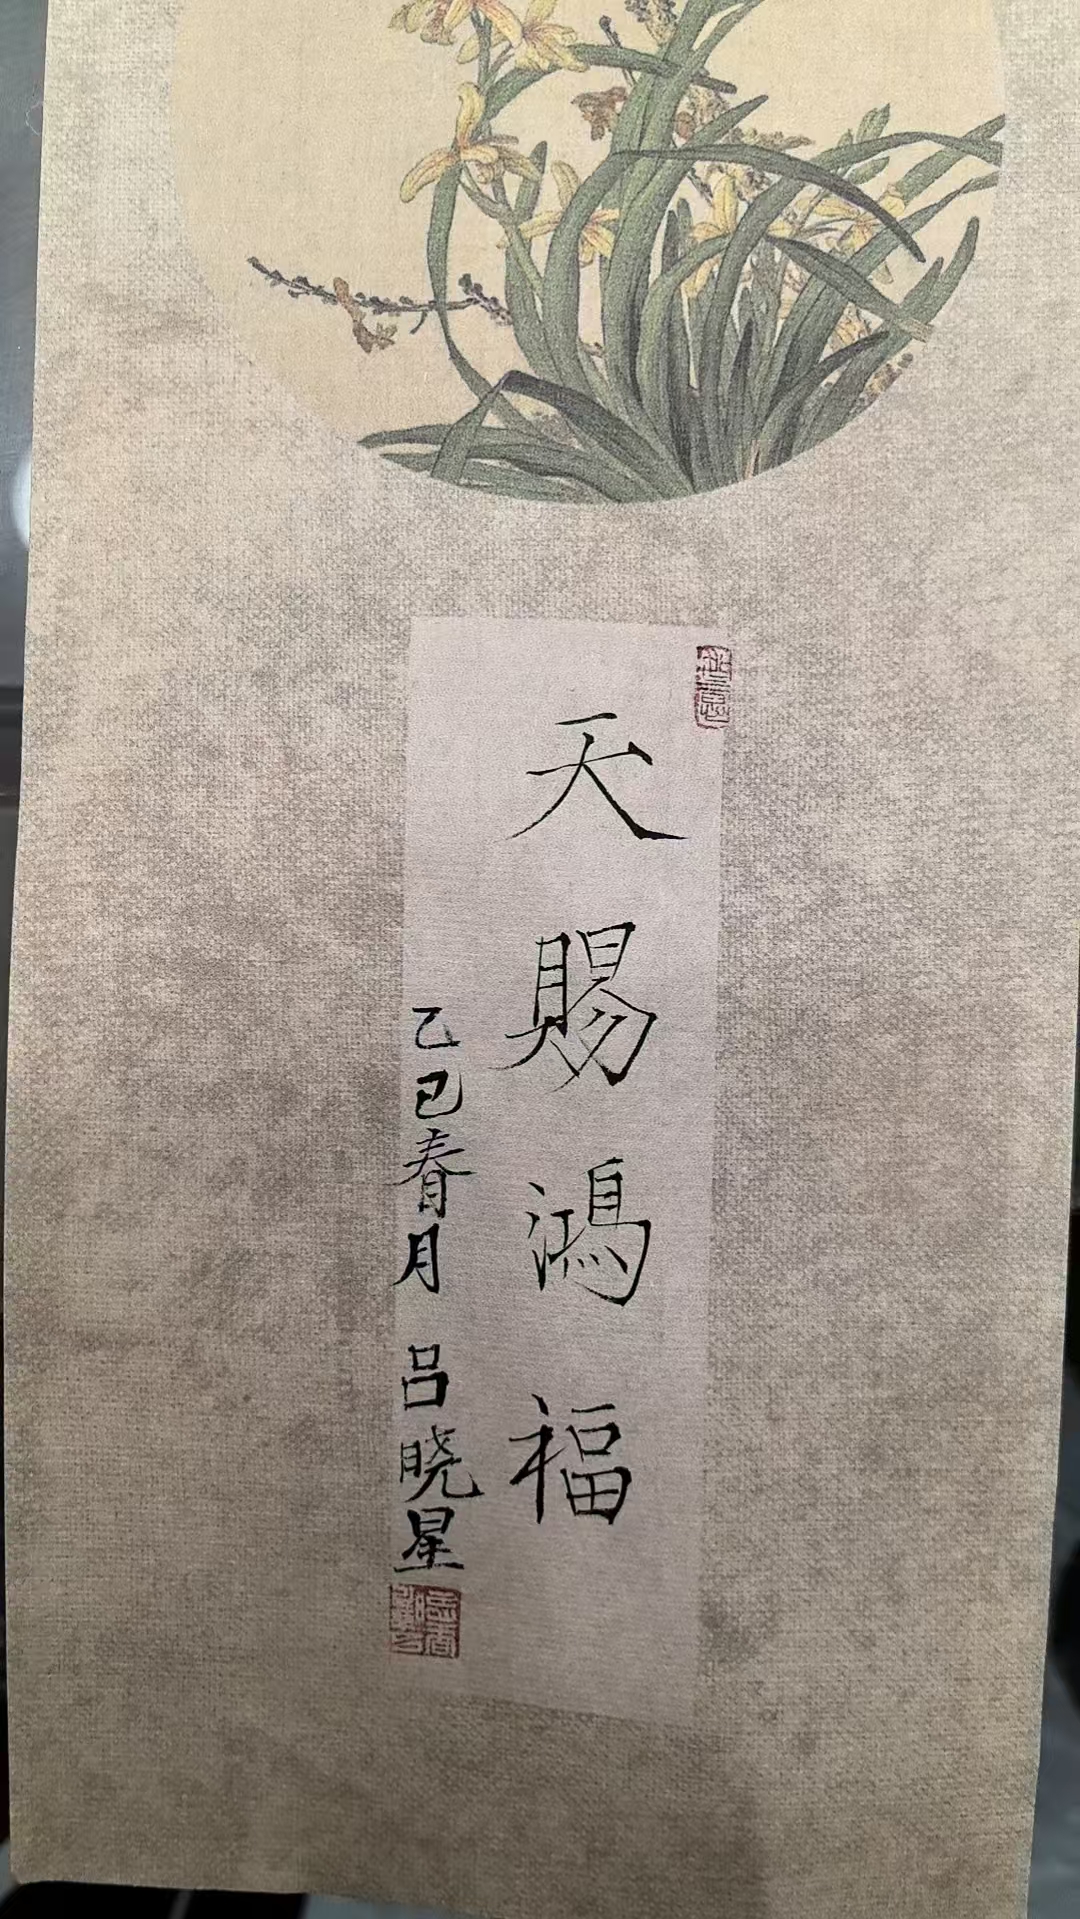 天賜鴻福
乙巳春月 吕晓星